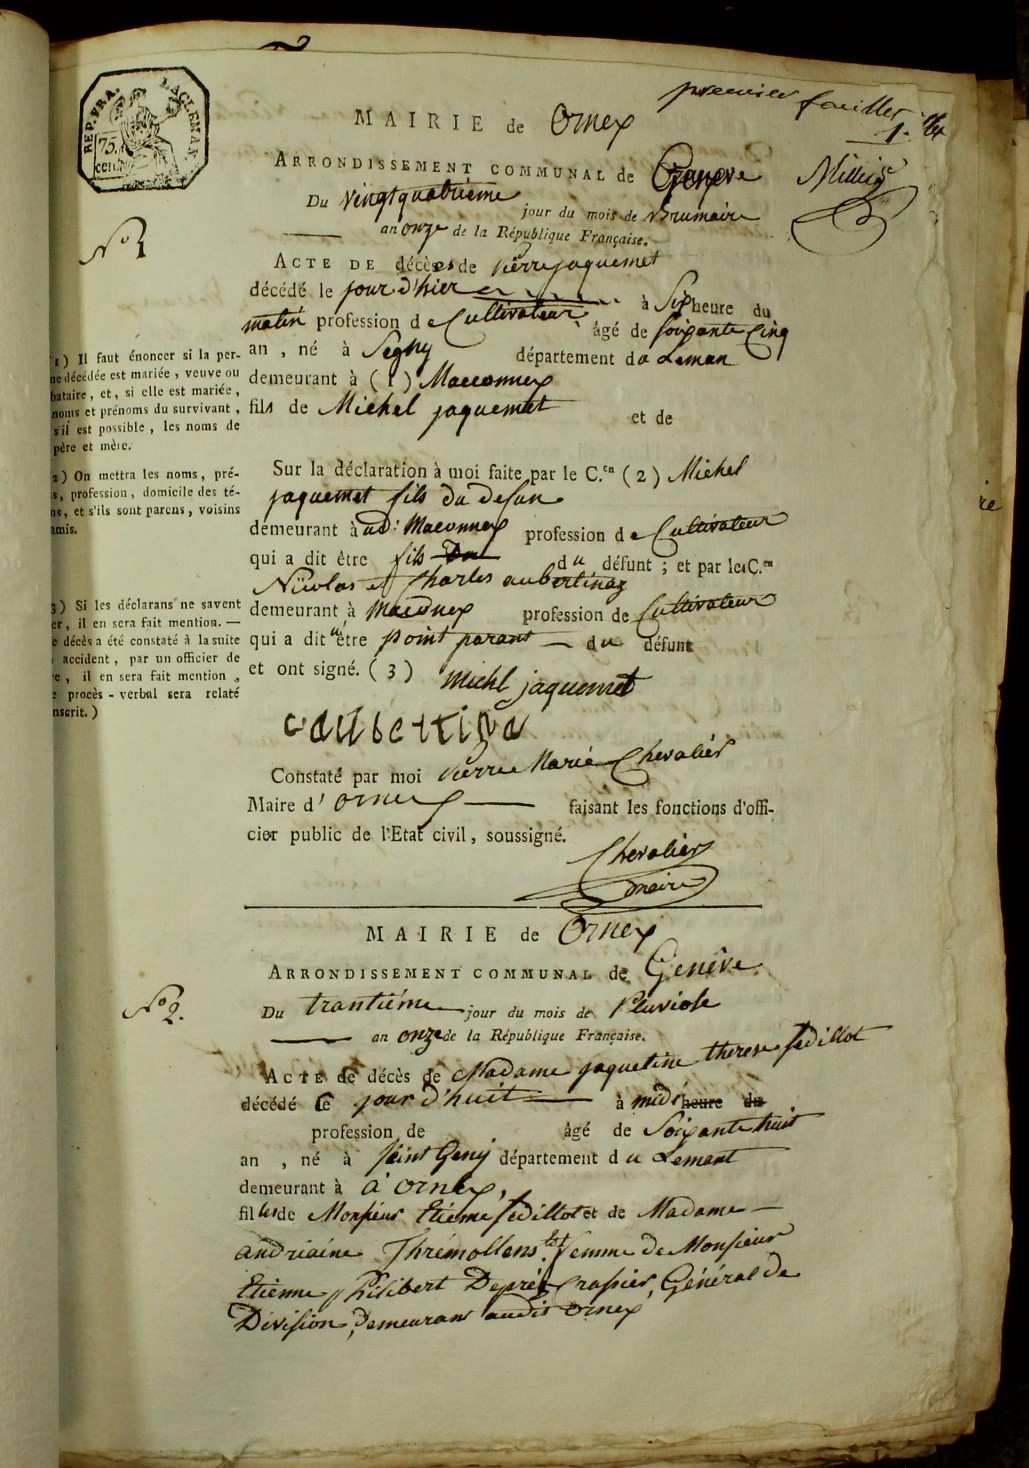 REP. FRA.
75.
cen.
premier feuillet
1.
MAIRIE de Ornex
ARRONDISSEMENT COMMUNAL de Geneve
Du vingtquatrieme jour du mois de Brumaire
an onze de la République Française.
N° 1
ACTE DE décès de pierre jaquemet
décédé le jour d'hier à Six heure du
matin profession de Cultivateur âgé de soixante Cinq
an , né à Segny département du Leman
demeurant à (1) Maconnex
fils de Michel jaquemet et de
1) Il faut énoncer si la per-
ne décédée est mariée, veuve ou
bataire, et, si elle est mariée,
noms et prénoms du survivant,
s'il est possible, les noms de
père et mère.
2) On mettra les noms, pré-
s, profession, domicile des té-
ns, et s'ils sont parens, voisins
amis.
3) Si les déclarans ne savent
er, il en sera fait mention. —
e décès a été constaté à la suite
accident, par un officier de
re, il en sera fait mention,
e procès-verbal sera relaté
nscrit.)
Sur la déclaration à moi faite par le C.en (2) Michel
jaquemet fils du defun
demeurant à ud: Maconnex profession de Cultivateur
qui a dit être fils du défunt ; et par les C.en
Nicolas et Charles aubertinaz
demeurant à Maconex profession de Cultivateur
qui a dit être point parant du défunt
et ont signé. (3) Michl jaquemet
Constaté par moi pierre Marie Chevalier
Maire d' ornex faisant les fonctions d'offi-
cier public de l'Etat civil, soussigné.
Chevalier
maire
MAIRIE de Ornex
ARRONDISSEMENT COMMUNAL de Genève
N° 2.
Du trantiéme jour du mois de Pluviose
an onze de la République Française.
ACTE de décès de Madame jaqueline therese sedillot
décédé le jour d'huit à midi heure du
profession de âgé de Soixante huit
an , né à Saint Geny département du Lemant
demeurant à à ornex,
filles de Monsieur Etienne sedillot et de Madame
andriaine Thrémollens femme de Monsieur
Etienne philibert Depréz Crassier, Général de
Division, demeurant audit Ornex